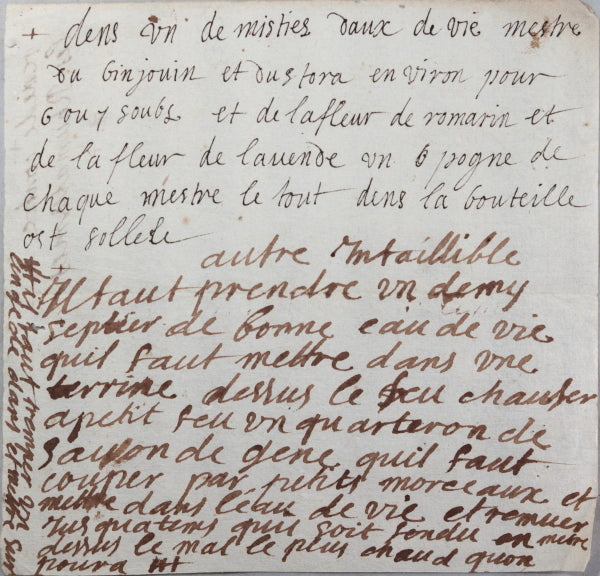 + dens vn demisties daux de vie mestre
du binjouin et dustora en viron pour
6 ou 7 soubs et de lafleur de romarin et
de la fleur de lauende vn 6 pogne de
chaque mestre le tout dens la bouteille
ost sollele
autre Infaillible
Il faut prendre vn demy
septier de bonne eau de vie
quil faut mettre dans vne
terrine dessus le feu chaufer
apetit feu vn quarteron de
sauon de gene quil faut
couper par petits morceaux et
mettre dans leau de vie et remuer
Jusquatems quil soit fondu en mettre
dessus le mal le plus chaud quon
poura
faut remuer
dans